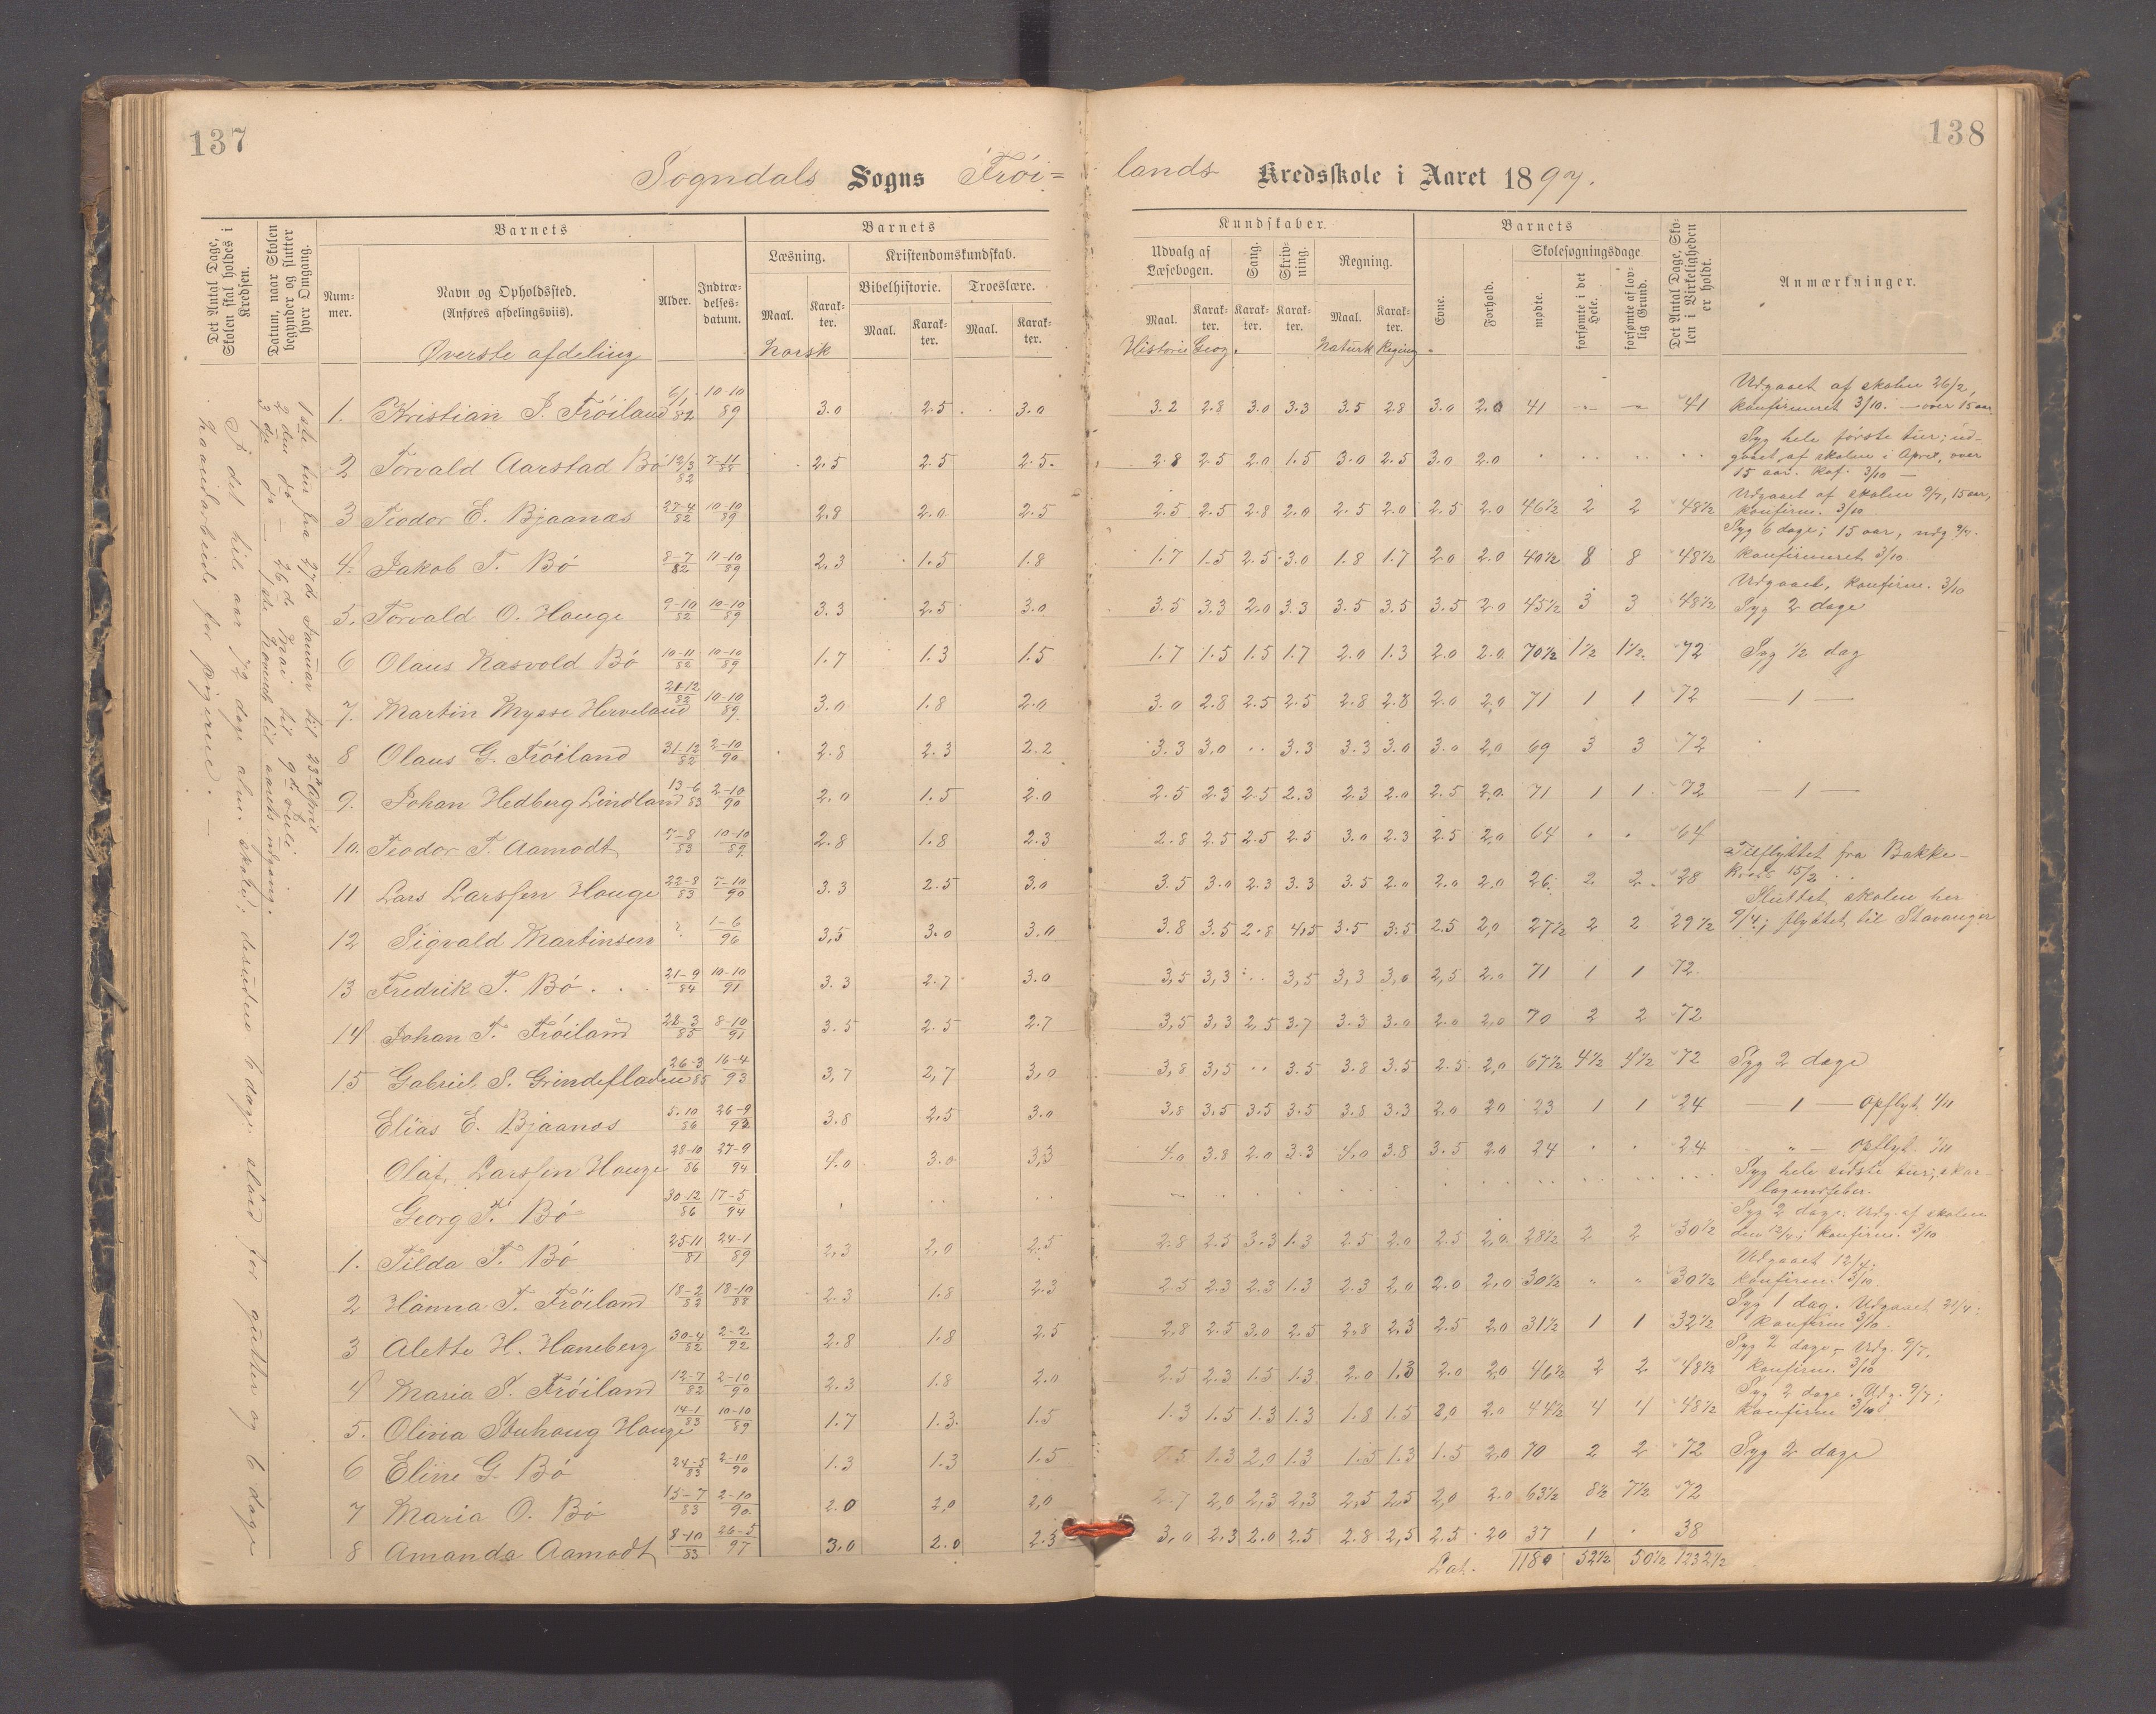 137
138
Sogndals Sogns Frøi=
lands Kredsskole i Aaret 1897.
Det Antal Dage, Skolen skal holdes i Kredsen.
Datum, naar Skolen begynder og slutter hver Omgang.
Num-mer.
Barnets
Navn og Opholdssted.
(Anføres afdelingsviis).
Alder.
Indtræ-delses-datum.
Barnets
Læsning.
Kristendomskundskab.
Bibelhistorie.
Troeslære.
Maal.
Karak-ter.
Maal.
Karak-ter.
Maal.
Karak-ter.
Kundskaber.
Udvalg af Læsebogen.
Sang.
Skriv-ning.
Regning.
Maal.
Karak-ter.
Karak-ter.
Karak-ter.
Maal.
Karak-ter.
Barnets
Evne.
Forhold.
Skolesøgningsdage
mødte.
forsømte i det Hele.
forsømte af lov-lig Grund.
Det Antal Dage, Sko-len i Virkeligheden er holdt.
Anmærkninger.
Øverste afdeling
Norsk
Historie Geog. Naturk Regning.
1ste tur fra 27de Januar til 23de April
2den do — 26de Mai til 9de Juli
I det hele aar 72 dage alm. skole; desuden 6 dage sløid for gutter og 6 dage
haandarbeide for pigerne. —
1. Kristian J. Frøiland 6/1 82 10-10 89 3.0 2.5 3.0 3.2 2.8 3.0 3.3 3.5 2.8 3.0 2.0 41 - - 41 Udgaaet af skolen 26/2, konfirmeret 3/10. — over 15 aar
2 Torvald Aarstad Bö 12/3 82 7-11 88 2.5 2.5 2.5 2.8 2.5 2.0 1.5 3.0 2.5 3.0 2.0 Syg hele første tur; ud-gaaet af skolen i April, over 15 aar. Kof. 3/10 —
3 Teodor E. Bjaanæs 27-4 82 10-10 89 2.8 2.0 2.5 2.5 2.5 2.8 2.0 2.5 2.0 2.5 2.0 46½ 2 2 48½ Udgaaet af skolen 9/7, 15 aar, konfirm. 3/10
4. Jakob T. Bö 8-7 82 11-10 89 2.3 1.5 1.8 1.7 1.5 2.5 3.0 1.8 1.7 2.0 2.0 40½ 8 8 48½ Syg 6 dage; 15 aar, udg 9/7. konfirmeret 3/10
5. Torvald O. Hauge 9-10 82 10-10 89 3.3 2.5 3.0 3.5 3.3 2.0 3.3 3.5 3.5 3.5 2.0 45½ 3 3 48½ Udgaaet, konfirm. 3/10 Syg 2 dage
6 Olaus Kasvold Bö 10-11 82 10-10 89 1.7 1.3 1.5 1.7 1.5 1.5 1.7 2.0 1.3 2.0 2.0 70½ 1½ 1½ 72 Syg ½ dag
7. Martin Mysse Herveland 21-12 82 10-10 89 3.0 1.8 2.0 3.0 2.8 2.5 2.5 2.8 2.8 2.0 2,0 71 1 1 72 — 1 —
8 Olaus G. Frøiland 31-12 82 2-10 90 2.8 2.3 2.2 3.3 3.0 .. 3.3 3.3 3.0 3.0 2,0 69 3 3 72
9. Johan Hedberg Lindland 13-6 83 2-10 90 2.0 1.5 2.0 2.5 2.3 2.5 2.3 2.3 2.0 2.5 2,0 71 1 1 72 — 1 —
10. Teodor T. Aamodt 7-8 83 10-10 89 2.8 1.8 2.3 2.8 2.5 2.5 2.5 3.0 2.3 2.5 2,0 64 . . 64
11 Lars Larssen Hauge 22-8 83 7-10 90 3.3 2.5 3.0 3.5 3.0 2.3 3.3 3.5 2.0 2.0 2.0 26 2 2 28 Tilflyttet fra Bakke-15/2
12 Sigvald Martinsen ? 1-6 96 3,5 3.0 3.0 3.8 3.5 2.8 4,5 3.5 3.5 2.5 2,0 27½ 2 2 29½ Sluttet skolen her 9/4; flyttet til Stavanger
13 Fredrik T. Bö 21-9 84 10-10 91 3.3 2.7 3.0 3,5 3,3 .. 3,5 3,3 3,0 2,5 2.0 71 1 1 72
14 Johan T. Frøiland 28-3 85 8-10 91 3.5 2.5 2.7 3,5 3,3 2,5 3.7 3.3 3.0 2.0 2,0 70 2 2 72
15 Gabriel S. Grindefladen 26-3 85 16-4 93 3,7 2,7 3,0 3,8 3,5 .. 3.5 3.8 3.5 2.5 2,0 67½ 4½ 4½ 72 Syg 2 dage
Elias E. Bjaanæs 5-10 86 26-9 92 3.8 2.5 3.0 3.8 3.5 3.5 3.5 3.8 3.3 2.0 20 23 1 1 24 — 1 — Opflyt. 1/11
Olaf Larssen Hauge 28-10 86 27-9 94 4.0 3.0 3,3 4.0 3.8 2.0 3.3 4.0 3.8 3.5 2.0 24 . . 24 " — opflyt. 1/11
Georg T. Bö 30-12 86 17-5 94 Syg hele sidste tur; skar-lagensfeber.
1. Tilda T. Bö 25-11 81 24-1 89 2,3 2,0 2.5 2.8 2.5 3.3 1.3 2.5 2.0 2.5 2,0 28½ 2 2 30½ Syg 2 dage; Udg. af skolen den 12/4; konfirm. 3/10
2 Hanna T. Frøiland 18-2 82 18-10 88 2.3 1.8 2.3 2.5 2.3 2.3 1.3 2.3 2,0 2.0 2,0 30½ " " 30½ Udgaaet 12/4; konfirm. 3/10.
3 Alette H. Haneberg 30-4 82 2-2 92 2.8 1.8 2.5 2,8 2.5 3.0 2.5 2,8 2,3 2.5 2,0 31½ 1 1 32½ Syg 1 dag. Udgaaet 21/4; konfirm 3/10.
4 Maria S. Frøiland 12-7 82 2-10 90 2.3 1.8 2.0 2.5 2.3 1.5 1.3 2.0 1.3 2.0 2,0 46½ 2 2 48½ Syg 2 dage - Udg. 9/7, konfirm. 3/10
5. Olivia Stuhaug Hauge 14-1 83 10-10 89 1.7 1.3. 1.5 1.3 1.5 1.3 1.3 1.8 1.5 2,0 2.0 44½ 4 4 48½ Syg 2 dage. Udg. 9/7; konfirm 3/10
6 Eline G. Bö 24-5 83 2-10 90 1.3 1.3 1.5 1.5 1.3 2,0 1.3 1.5 1.3 1.5 2,0 70 2 2 72 Syg 2 dage
7 Maria O. Bö 15-7 83 2-10 90. 2.0 2,0 2,0 2.7 2,0 2,3 2,3 2,5 2,5 2,0 2.0 63½ 8½ 7½ 72
8 Amanda Aamodt 8-10 83 26-5 97 3.0 2.0 2.3 3,0 2.3 2.0 2.5 2.8 2,5 2.5 20 37 1 . 38
Lat. 1180 52½ 50½ 1232½